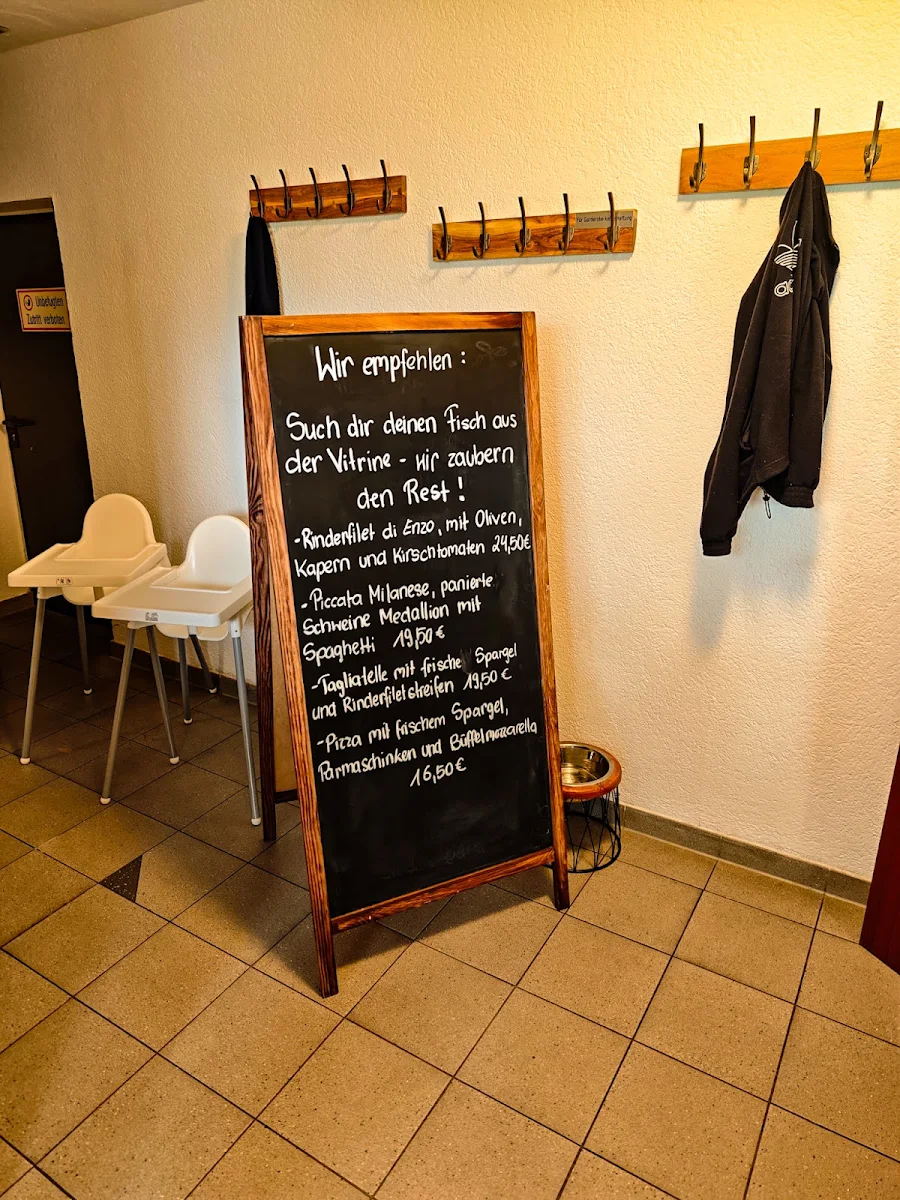 Unbefugten
Zutritt verboten
Für Garderobe keine Haftung
Wir empfehlen :
Such dir deinen Fisch aus
der Vitrine - wir zaubern
den Rest !
-Rinderfilet di Enzo, mit Oliven,
Kapern und Kirschtomaten 24,50€
-Piccata Milanese, panierte
Schweine Medallion mit
Spaghetti 19,50€
-Tagliatelle mit frische Spargel
und Rinderfiletstreifen 19,50€
-Pizza mit frischem Spargel,
Parmaschinken und Büffelmozzarella
16,50€